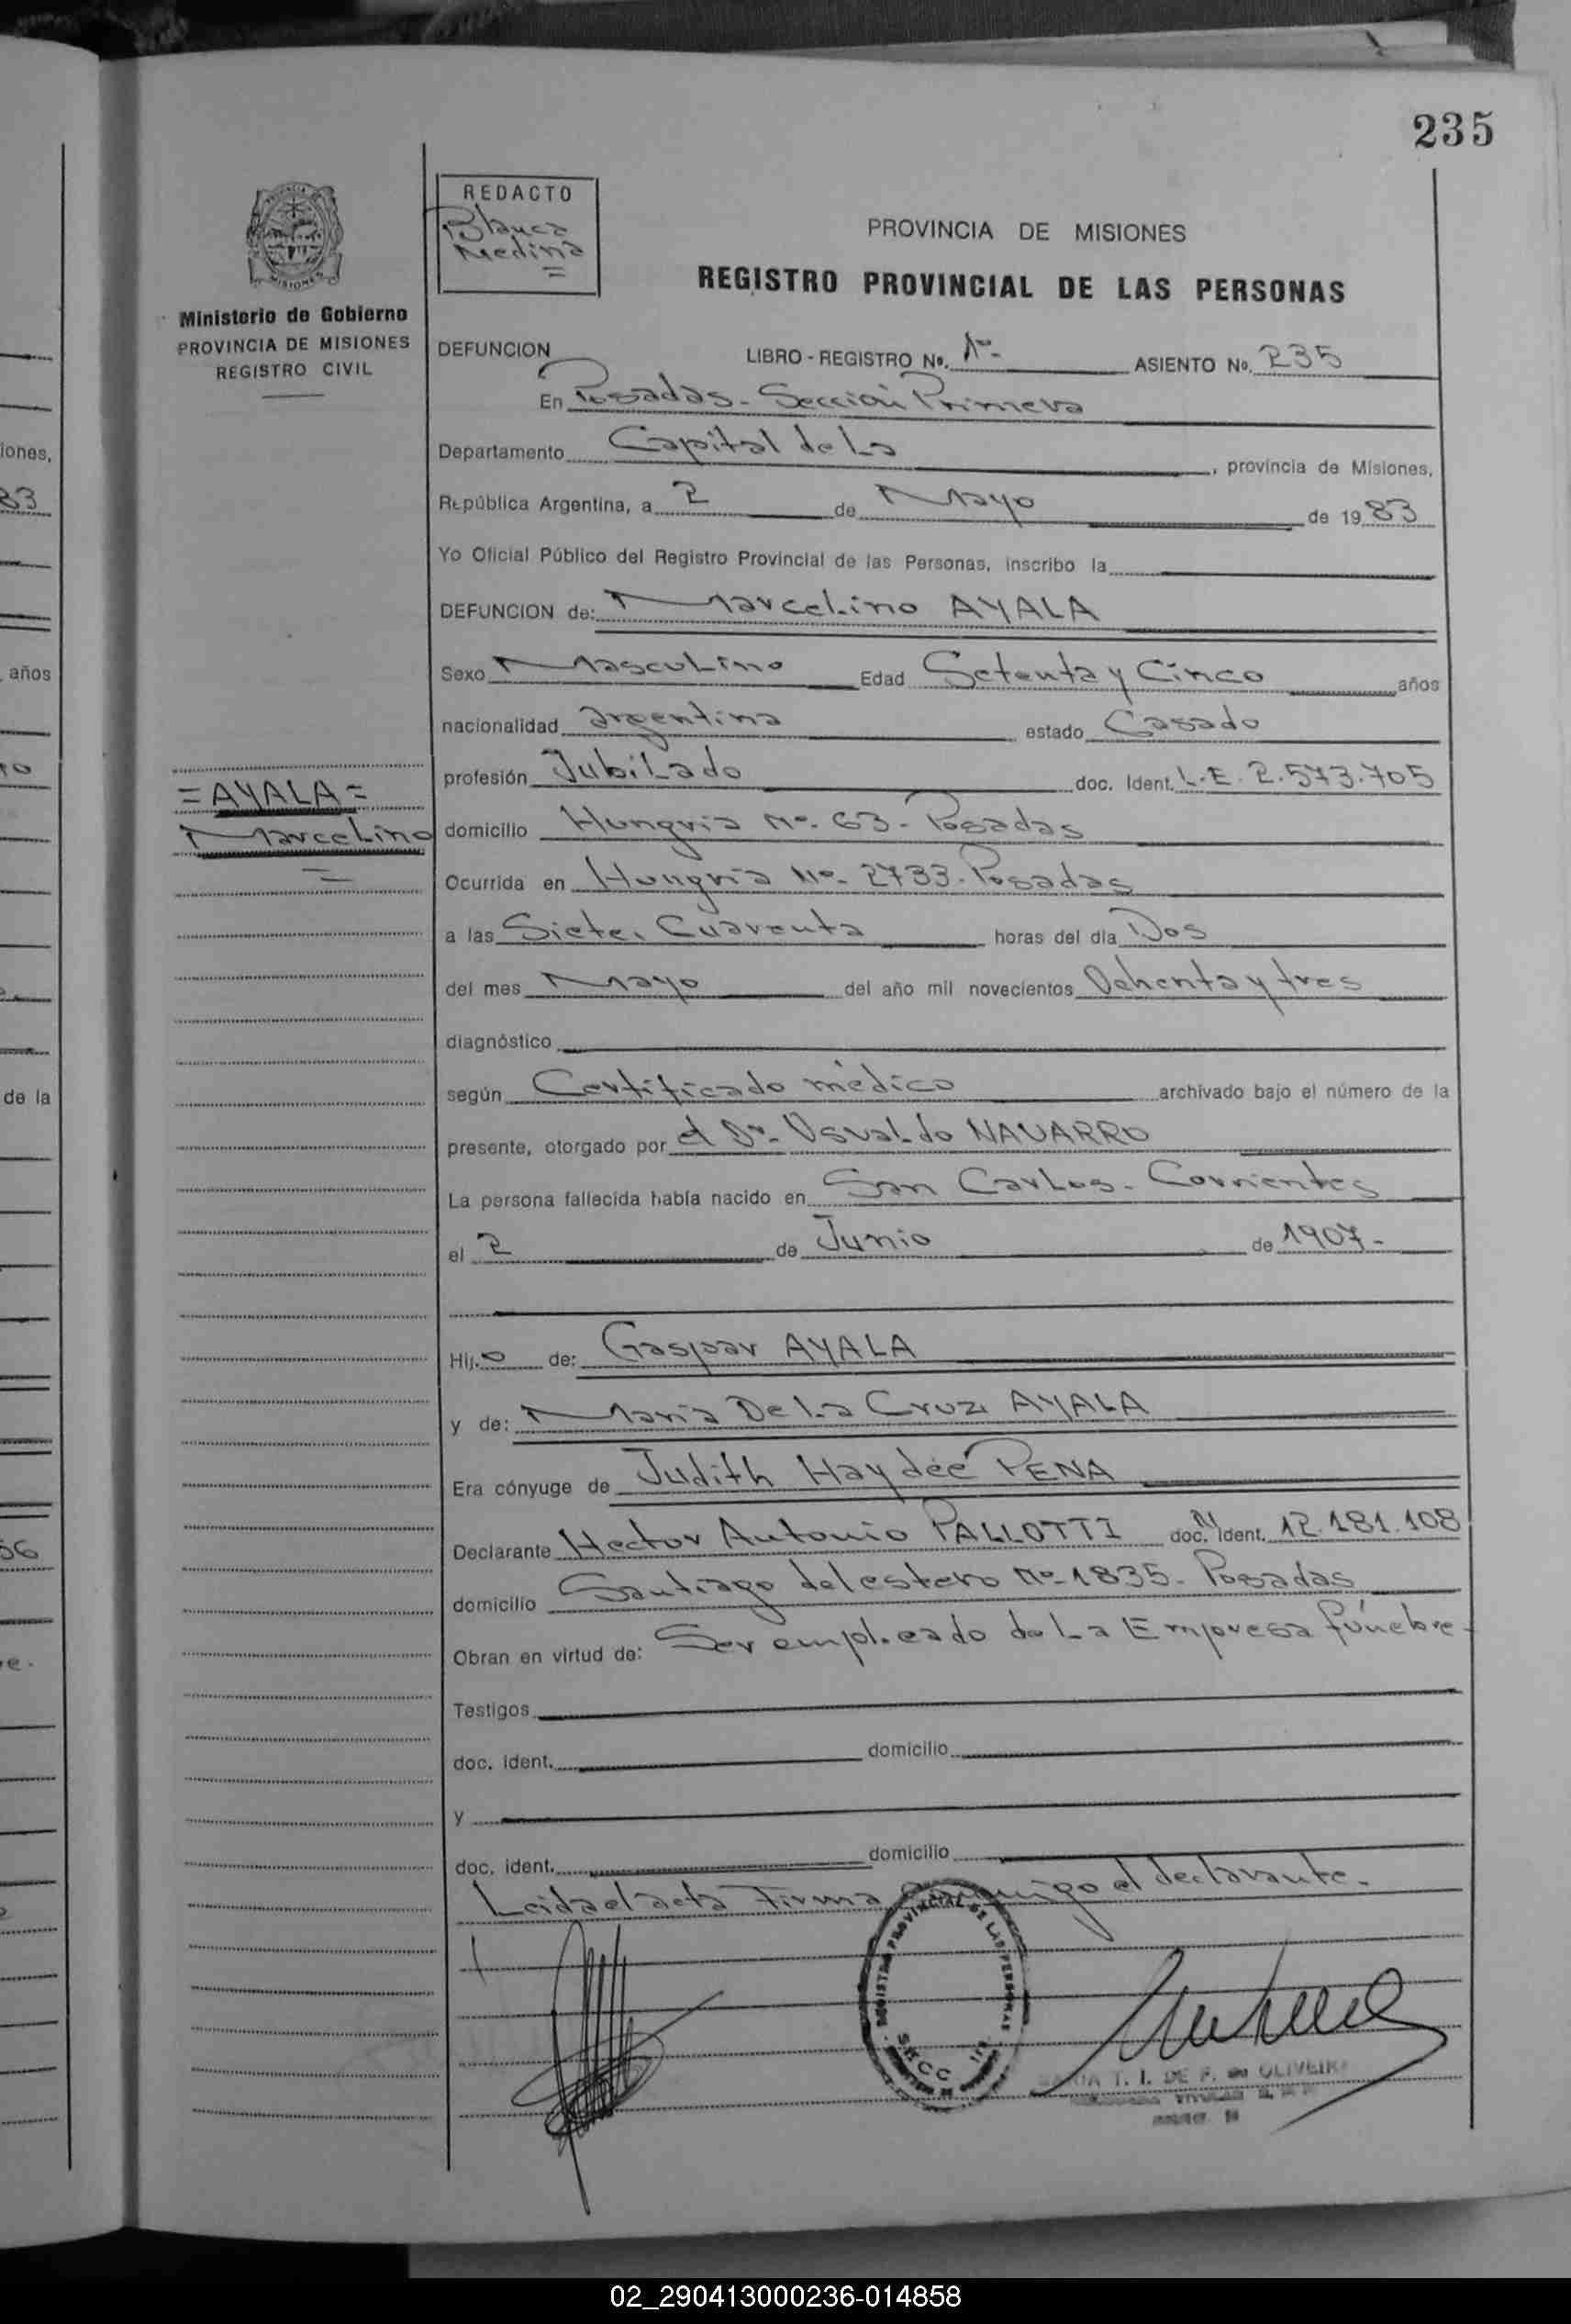 235
REDACTO
Blanca
Medina
=
MISIONES
Ministerio de Gobierno
PROVINCIA DE MISIONES
REGISTRO CIVIL
PROVINCIA DE MISIONES
REGISTRO PROVINCIAL DE LAS PERSONAS
DEFUNCION LIBRO - REGISTRO No. 1º- ASIENTO No. 235
En Posadas - Sección Primera
Departamento Capital de La, provincia de Misiones,
República Argentina, a 2 de Mayo de 1983
Yo Oficial Público del Registro Provincial de las Personas, inscribo la
DEFUNCION de: Marcelino AYALA
Sexo Masculino Edad Setenta y Cinco años
nacionalidad argentina estado Casado
profesión Jubilado doc. Ident. L.E. 2.573.705
domicilio Hungria Nº- 63 - Posadas
Ocurrida en Hungria Nº- 2733 - Posadas
a las Siete, Cuarenta horas del día Dos
del mes Mayo del año mil novecientos Ochenta y tres
diagnóstico
según Certificado médico archivado bajo el número de la
presente, otorgado por el Dr. Osvaldo NAVARRO
La persona fallecida había nacido en San Carlos - Corrientes
el 2 de Junio de 1907-
Hij o de: Gaspar AYALA
y de: Maria De La Cruz AYALA
Era cónyuge de Judith Haydée PENA
Declarante Hector Antonio PALLOTTI doc. Ident. 12.181.108
domicilio Santiago del estero Nº- 1835 - Posadas
Obran en virtud de: Ser empleado de La Empresa fúnebre -
Testigos
doc. ident. domicilio
y
doc. ident. domicilio
Leida el acta Firma conmigo el declarante.
=AYALA=
Marcelino
=
REGISTRO PROVINCIAL DE LAS PERSONAS
T. I. DE F. de OLIVEIRA
iones,
83
años
de la
56
02_290413000236-014858